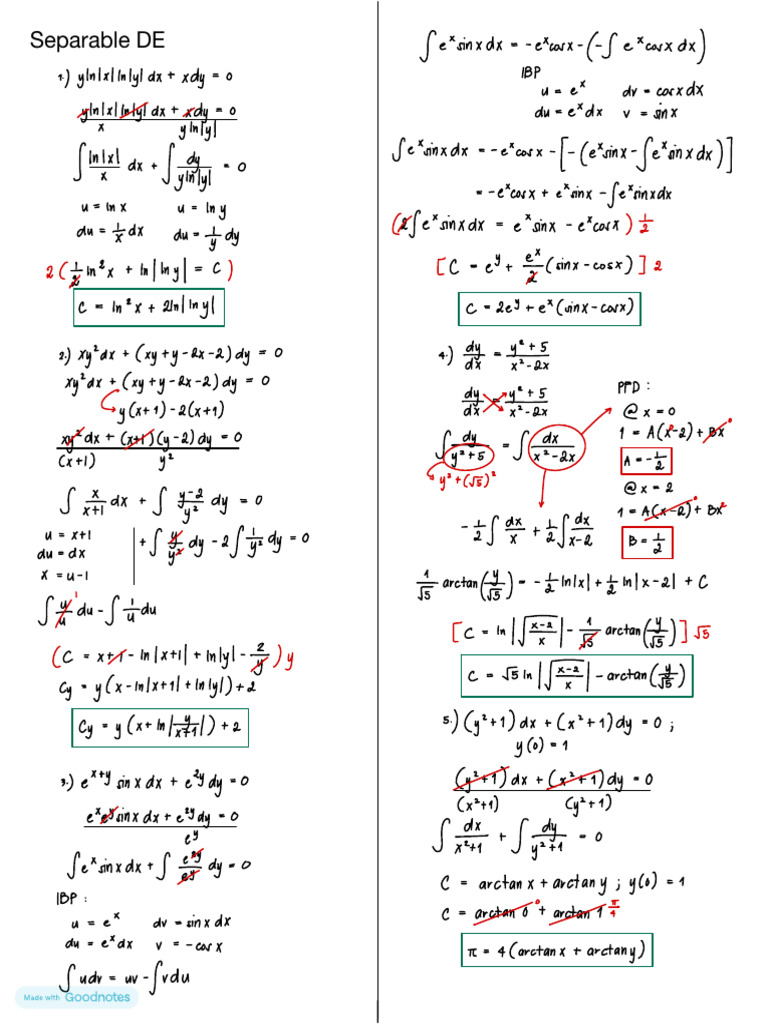 Separable DE
1.) y ln|x| ln|y| dx + x dy = 0
y ln|x| ln|y| dx + x dy = 0
x y ln|y|
∫ ln|x|/x dx + ∫ dy/(y ln|y|) = 0
u = ln x u = ln y
du = 1/x dx du = 1/y dy
2 ( 1/2 ln²x + ln|ln y| = C )
C = ln²x + 2ln|ln y|
2.) xy²dx + (xy + y - 2x - 2) dy = 0
xy²dx + (xy + y - 2x - 2) dy = 0
y(x+1) - 2(x+1)
xy²dx + (x+1)(y-2) dy = 0
(x+1) y²
∫ x/(x+1) dx + ∫ (y-2)/y² dy = 0
u = x+1
du = dx
x = u-1
+ ∫ y/y² dy - 2 ∫ 1/y² dy = 0
∫ u/u 1 du - ∫ 1/u du
( C = x + 1 - ln|x+1| + ln|y| - 2/y ) y
Cy = y ( x - ln|x+1| + ln|y| ) + 2
Cy = y ( x + ln| y/(x+1) | ) + 2
3.) e^(x+y) sin x dx + e^(2y) dy = 0
e^x e^y sin x dx + e^(2y) dy = 0
e^y
∫ e^x sin x dx + ∫ e^(2y)/e^y dy = 0
IBP :
u = e^x dv = sin x dx
du = e^x dx v = -cos x
∫ u dv = uv - ∫ v du
Made with Goodnotes
∫ e^x sin x dx = -e^x cos x - ( - ∫ e^x cos x dx )
IBP
u = e^x dv = cos x dx
du = e^x dx v = sin x
∫ e^x sin x dx = -e^x cos x - [ - ( e^x sin x - ∫ e^x sin x dx ) ]
= -e^x cos x + e^x sin x - ∫ e^x sin x dx
( 2 ∫ e^x sin x dx = e^x sin x - e^x cos x ) 1/2
[ C = e^y + e^x/2 (sin x - cos x) ] 2
C = 2e^y + e^x (sin x - cos x)
4.) dy/dx = (y² + 5)/(x² - 2x)
dy/dx = (y² + 5)/(x² - 2x)
∫ dy/(y² + 5) = ∫ dx/(x² - 2x)
y² + (√5)²
PFD :
@ x = 0
1 = A(x-2) + Bx 0
A = -1/2
@ x = 2
1 = A(x-2) 0 + Bx 2
B = 1/2
-1/2 ∫ dx/x + 1/2 ∫ dx/(x-2)
1/√5 arctan(y/√5) = -1/2 ln|x| + 1/2 ln|x-2| + C
[ C = ln|√((x-2)/x)| - 1/√5 arctan(y/√5) ] √5
C = √5 ln|√((x-2)/x)| - arctan(y/√5)
5.) (y²+1) dx + (x²+1) dy = 0 ;
y(0) = 1
(y²+1) dx + (x²+1) dy = 0
(x²+1) (y²+1)
∫ dx/(x²+1) + ∫ dy/(y²+1) = 0
C = arctan x + arctan y ; y(0) = 1
C = arctan 0 0 + arctan 1 π/4
π = 4 (arctan x + arctan y)